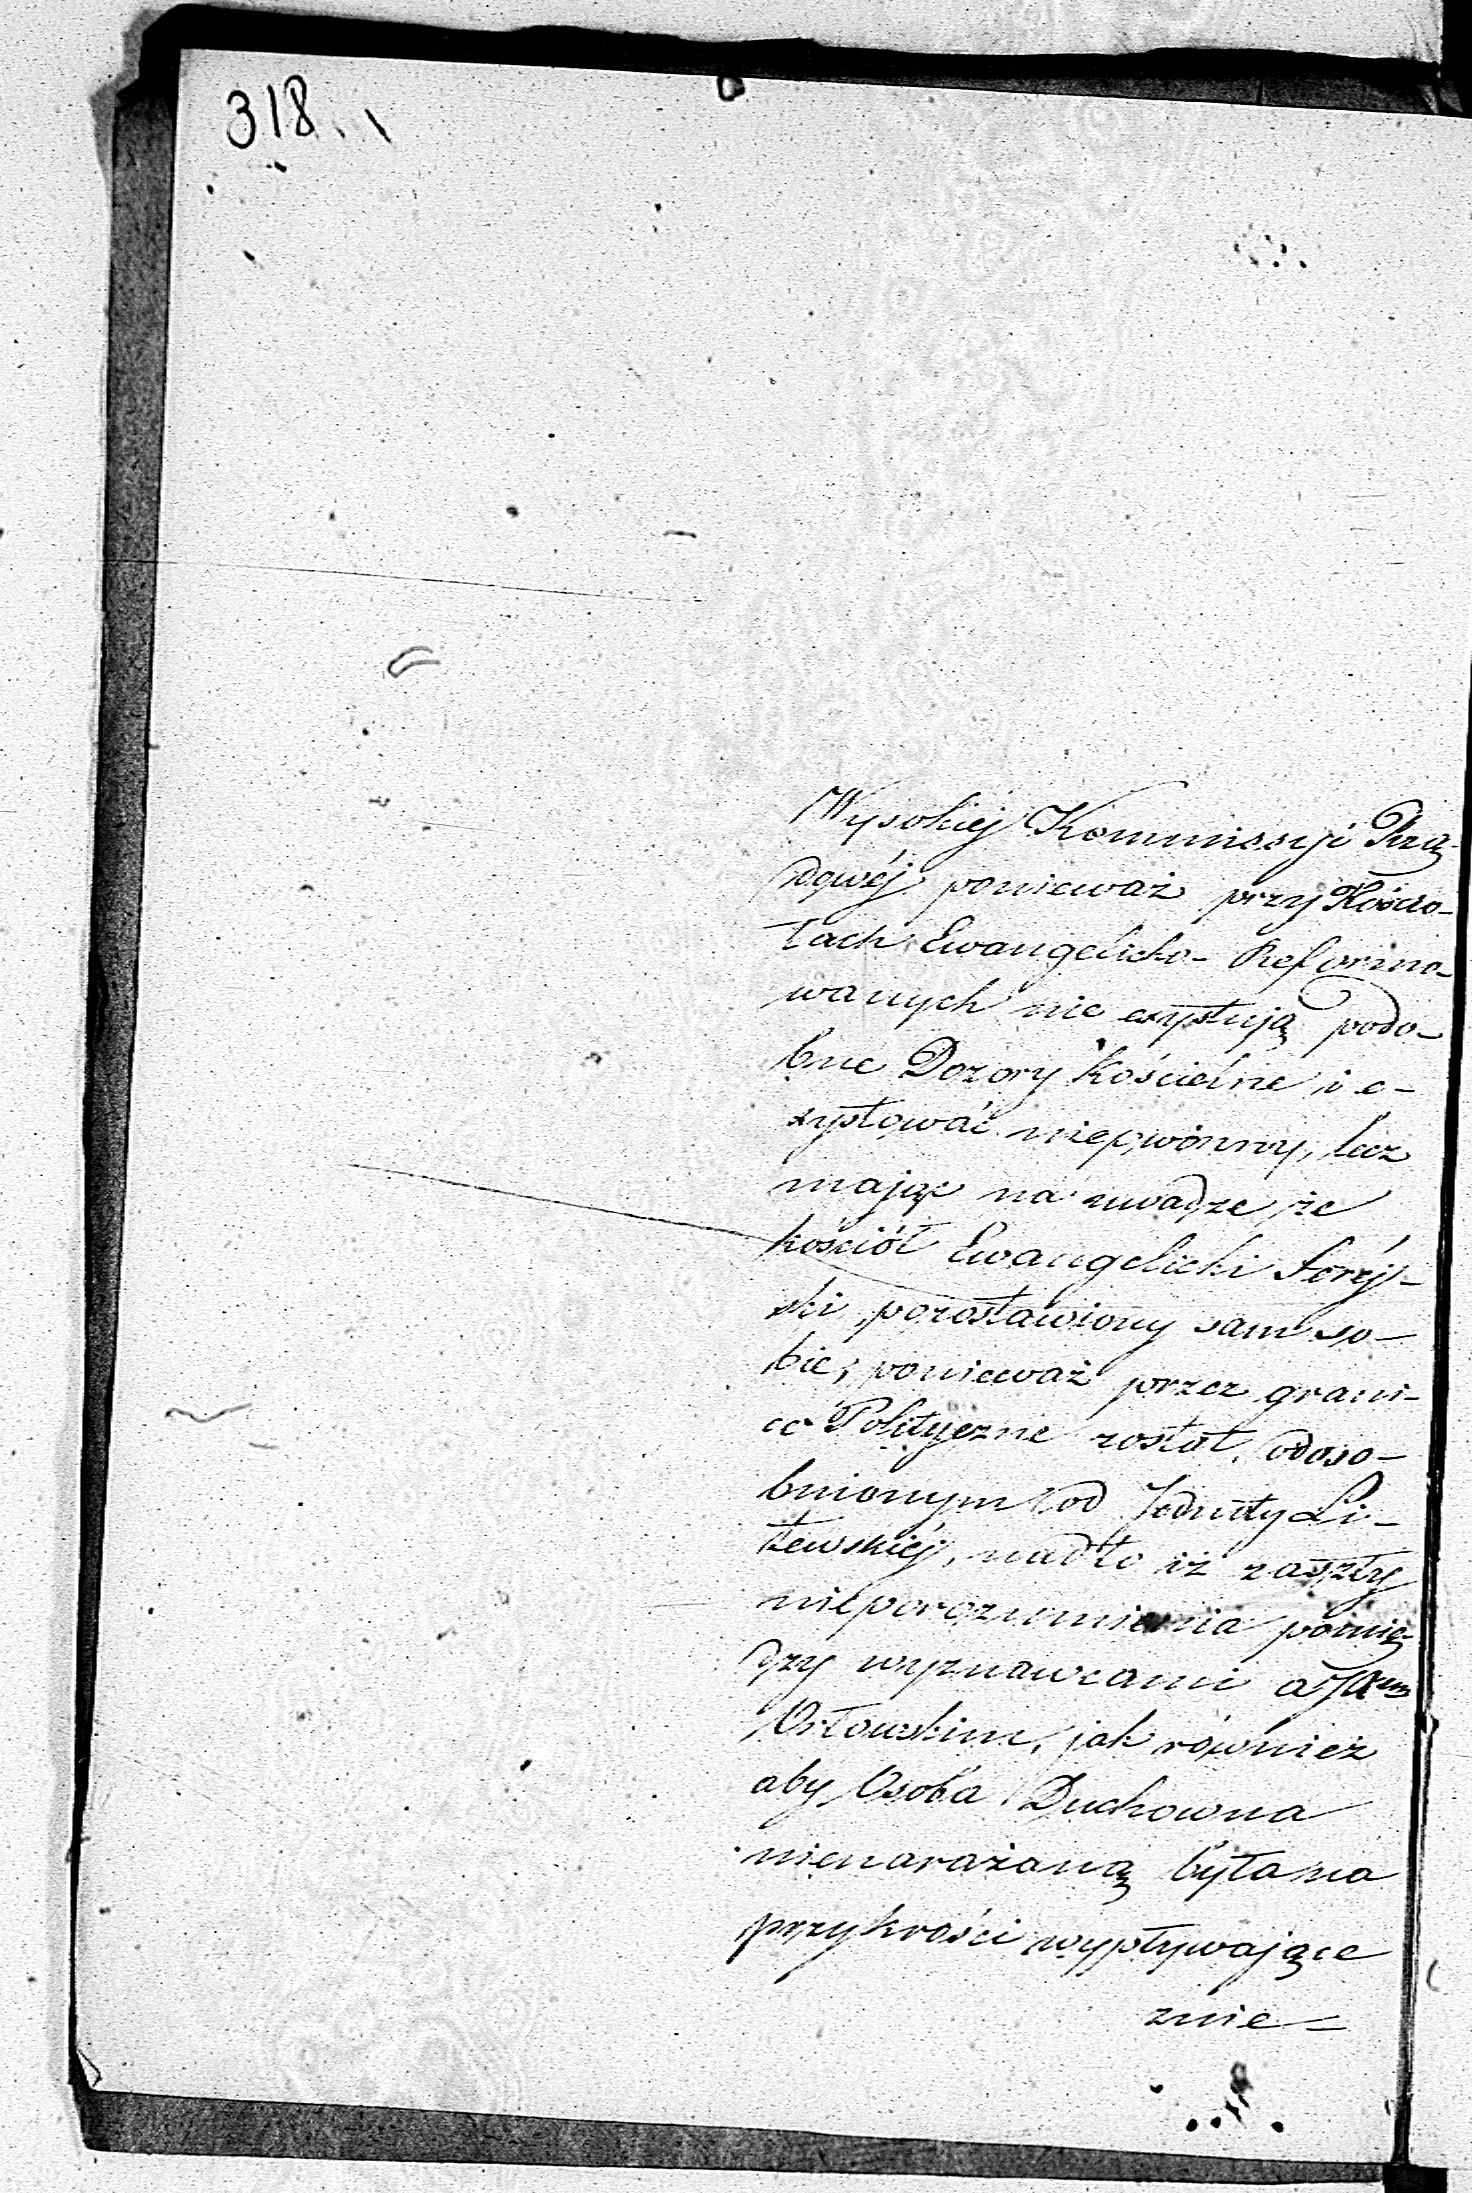 318.
Wysokiej Kommissyi Rzą-
dowéj ponieważ przy Kościo-
łach Ewangelicko-Reformo-
wanych nie exystują podo-
bne Dozory Kościelne i e-
xystować niepowinny, lecz
mając na uwadze że
kościół Ewangelicki Seréj-
ski pozostawiony sam so-
bie, ponieważ przez grani-
ce Polityczne został odoso-
bnionym od Jednoty Li-
tewskiéj, nadto iż zaszły
nieporozumienia pomię-
dzy wyznawcami a
Orłowskim, jak również
aby Osoba Duchowna
nienarażaną była na
przykrości wypływające
znie-